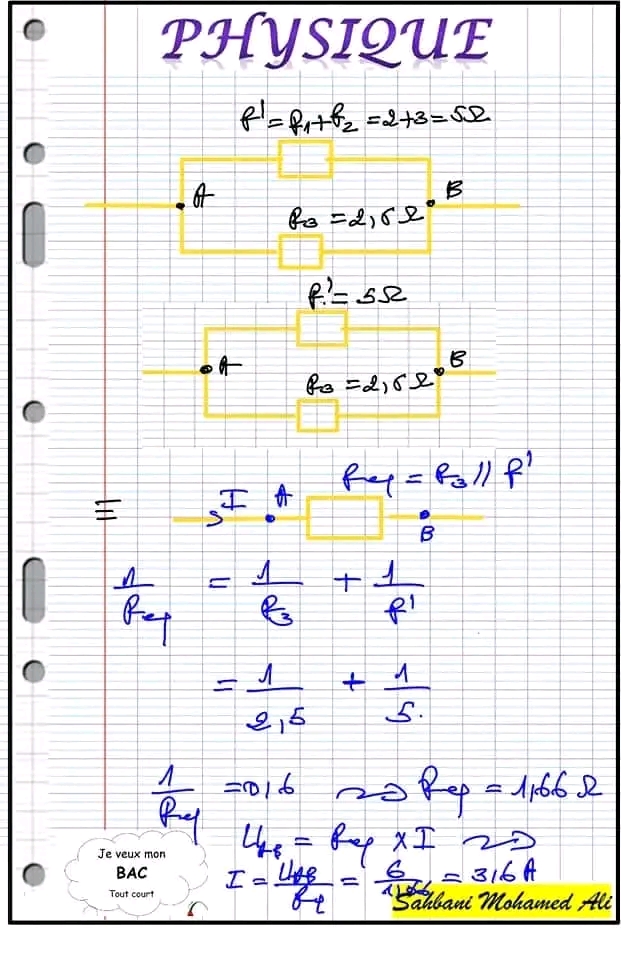 PHYSIQUE
R' = R1 + R2 = 2+3 = 5Ω
A
B
R3 = 2,5 Ω
R' = 5Ω
A
B
R3 = 2,5 Ω
Req = R3 // R'
≡ I A
B
1/Req = 1/R3 + 1/R'
= 1/2,5 + 1/5.
1/Req = 0,6 ⇝ Req = 1,66 Ω
UAB = Req × I ⇝
I = UAB/Req = 6/1,66 = 3,6 A
Je veux mon
BAC
Tout court
Sahbani Mohamed Ali